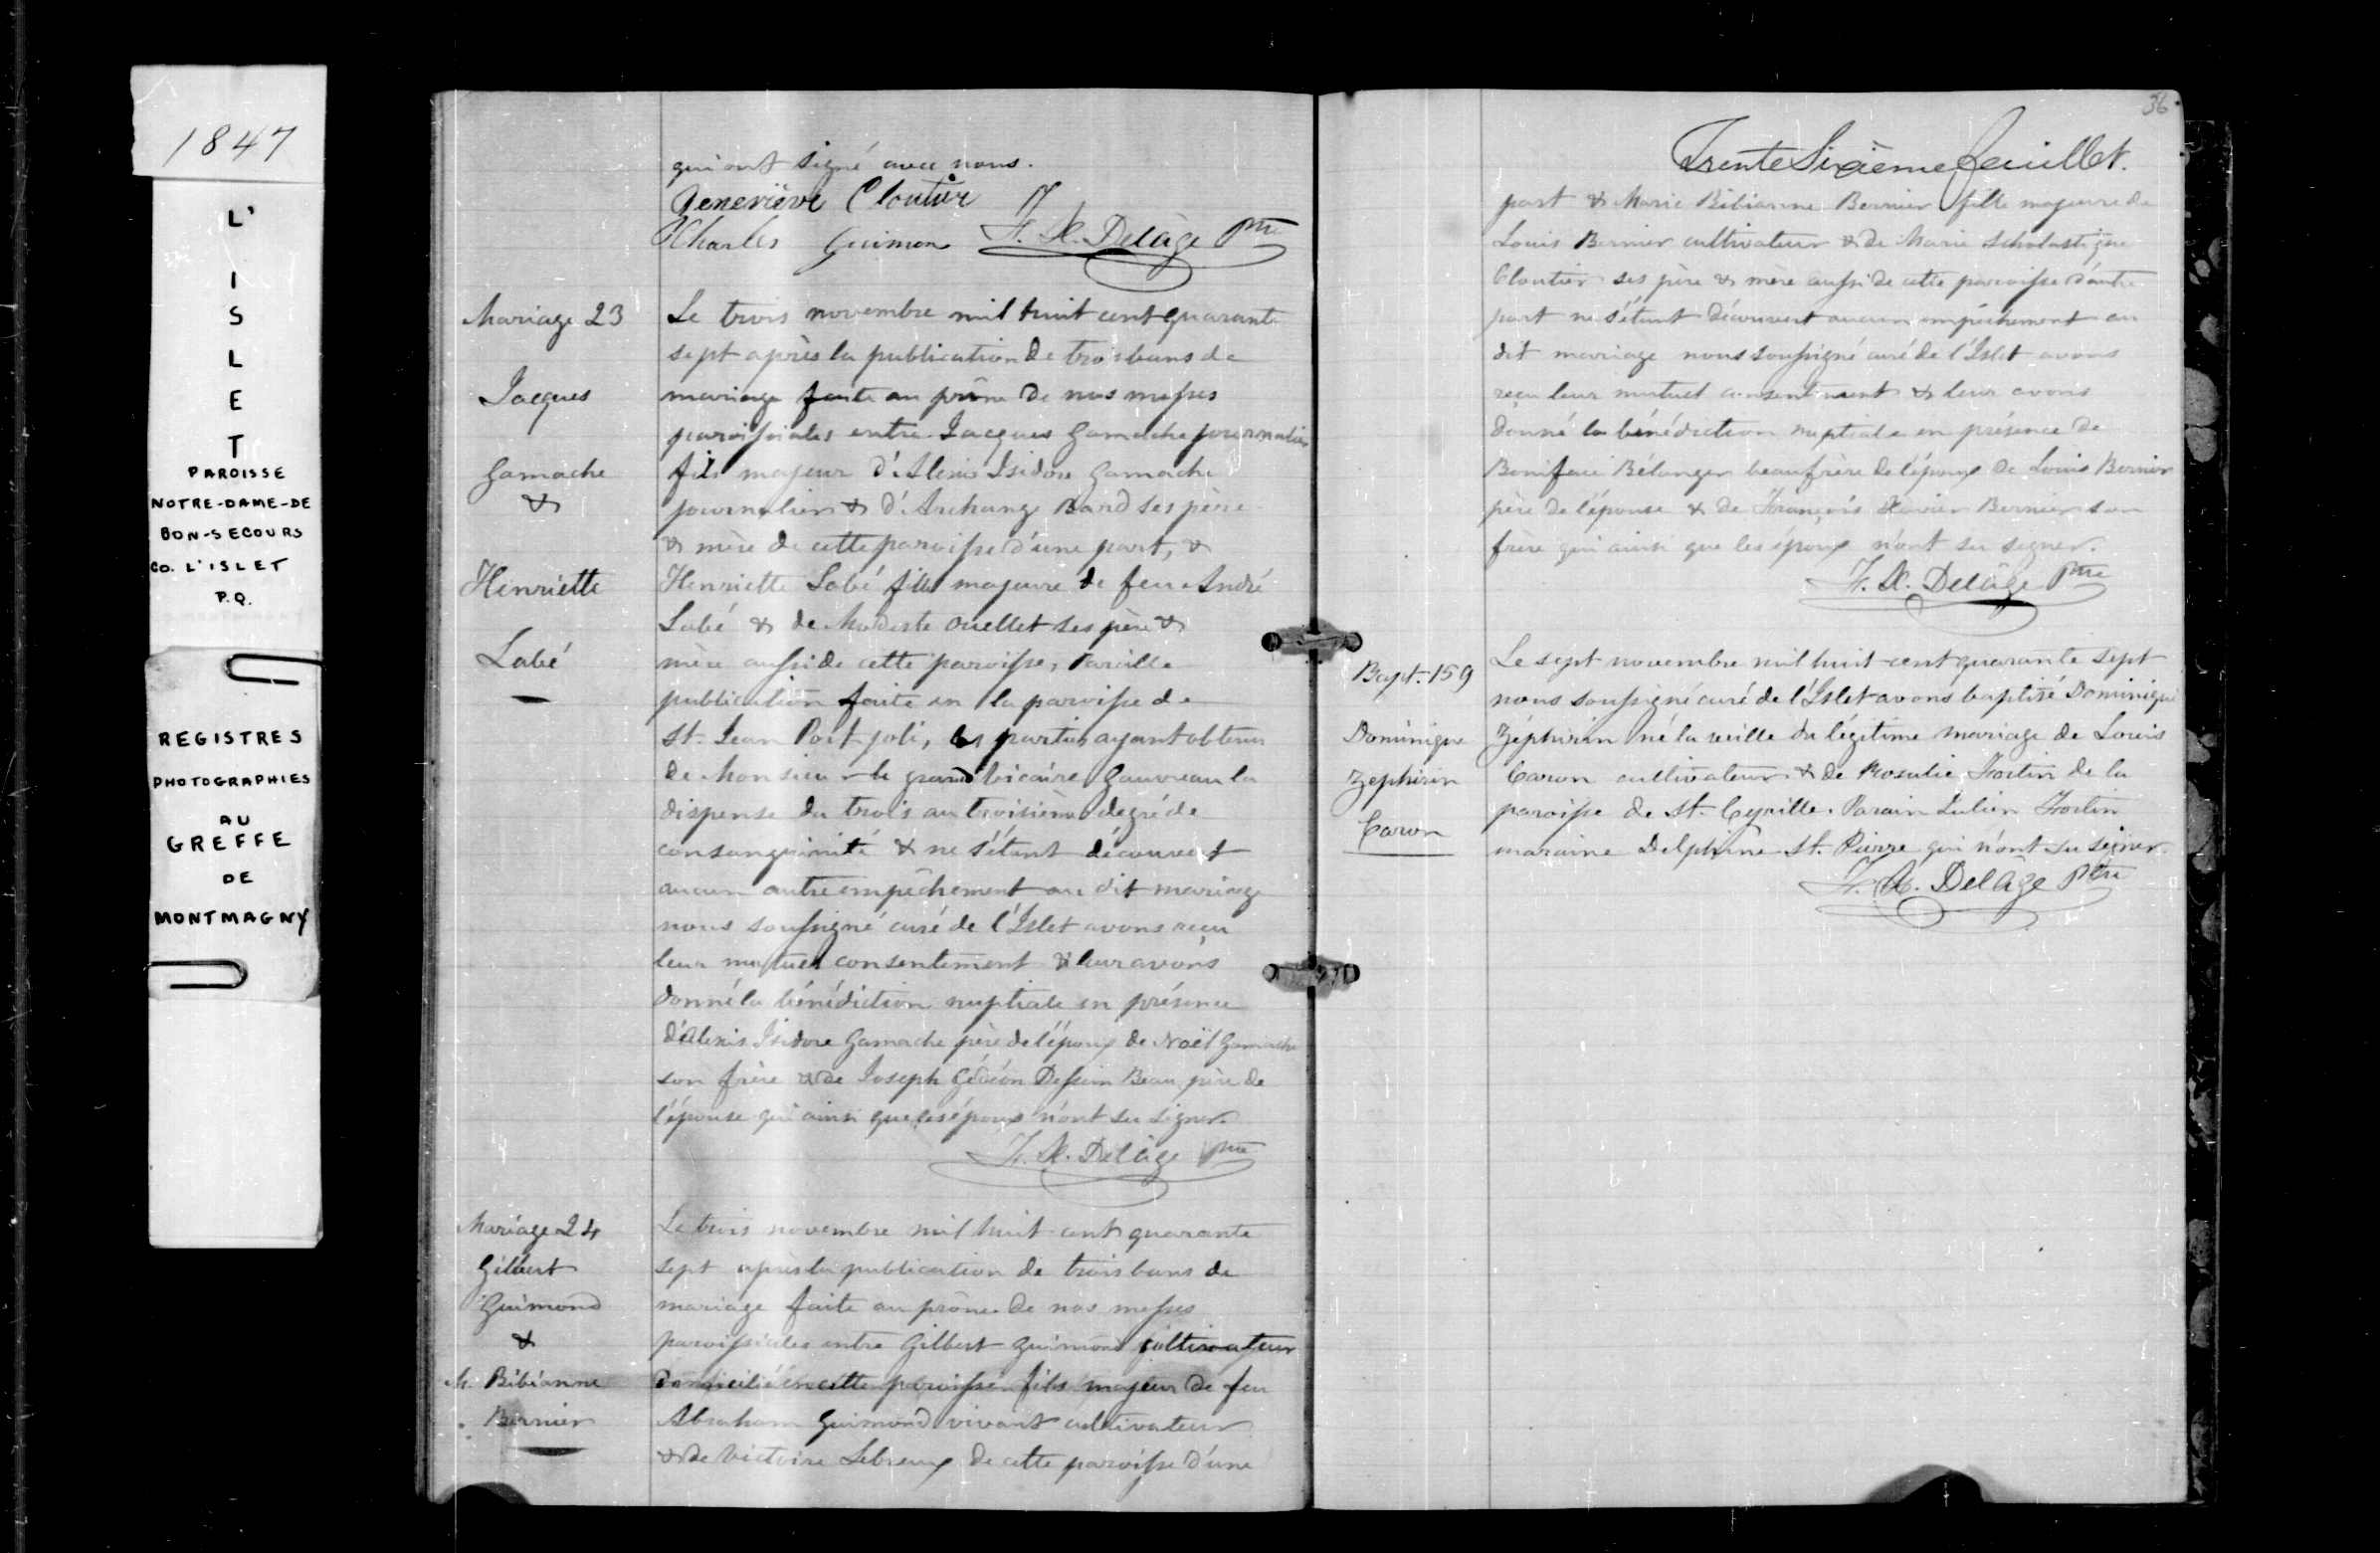 1847
L'
I
S
L
E
T
PAROISSE
NOTRE-DAME-DE
BON-SECOURS
CO. L'ISLET
P.Q.
REGISTRES
PHOTOGRAPHIES
AU
GREFFE
DE
MONTMAGNY
qui ont signé avec nous.
Geneviève Cloutier
Charles Guimon F. X. Delâge Ptre
Mariage 23
Jacques
Gamache
&
Henriette
Labé
Le trois novembre mil huit cent quarante
sept après la publication de trois bans de
mariage faite au prône de nos messes
paroissiales entre Jacques Gamache journalier
fils majeur d'Alexis Isidore Gamache
journalier & d'Archange Bard ses père
& mère de cette paroisse d'une part, &
Henriette Labé fille majeure de feu André
Labé & de Modeste Ouellet ses père &
mère aussi de cette paroisse, Pareille
publication faite en la paroisse de
St. Jean Port joli, les parties ayant obtenu
de Monsieur le grand vicaire Gauvreau la
dispense du trois au troisième degré de
consanguinité & ne s'étant découvert
aucun autre empêchement au dit mariage
nous soussigné curé de l'Islet avons reçu
leur mutuel consentement & leur avons
donné la bénédiction nuptiale en présence
d'Alexis Isidore Gamache père de l'époux de Noël Gamache
son frère & de Joseph Gédéon Beau père de
l'épouse qui ainsi que les époux n'ont su signer.
F. X. Delâge Ptre
Mariage 24
Gilbert
Guimond
&
M. Bibianne
Bernier
Le trois novembre mil huit cent quarante
sept après la publication de trois bans de
mariage faite au prône de nos messes
paroissiales entre Gilbert Guimond cultivateur
domicilié en cette paroisse fils majeur de feu
Abraham Guimond vivant cultivateur
& de Victoire Lebreux de cette paroisse d'une
36
Trente Sixième feuillet.
part & Marie Bibianne Bernier fille majeure de
Louis Bernier cultivateur & de Marie Scholastique
Cloutier ses père & mère aussi de cette paroisse d'autre
part ne s'étant découvert aucun empêchement au
dit mariage nous soussigné curé de l'Islet avons
reçu leur mutuel consentement & leur avons
donné la bénédiction nuptiale en présence de
Boniface Bélanger beaufrère de l'époux de Louis Bernier
père de l'épouse & de François Xavier Bernier son
frère qui ainsi que les époux n'ont su signer.
F. X. Delâge Ptre
Bapt. 159
Dominique
Zephirin
Caron
Le sept novembre mil huit cent quarante sept
nous soussigné curé de l'Islet avons baptisé Dominique
Zéphirin né la veille du légitime mariage de Louis
Caron cultivateur & de Rosalie Fortin de la
paroisse de St. Cyrille. Parain Julien Fortin
maraine Delphine St. Pierre qui n'ont su signer.
F. X. Delâge Ptre